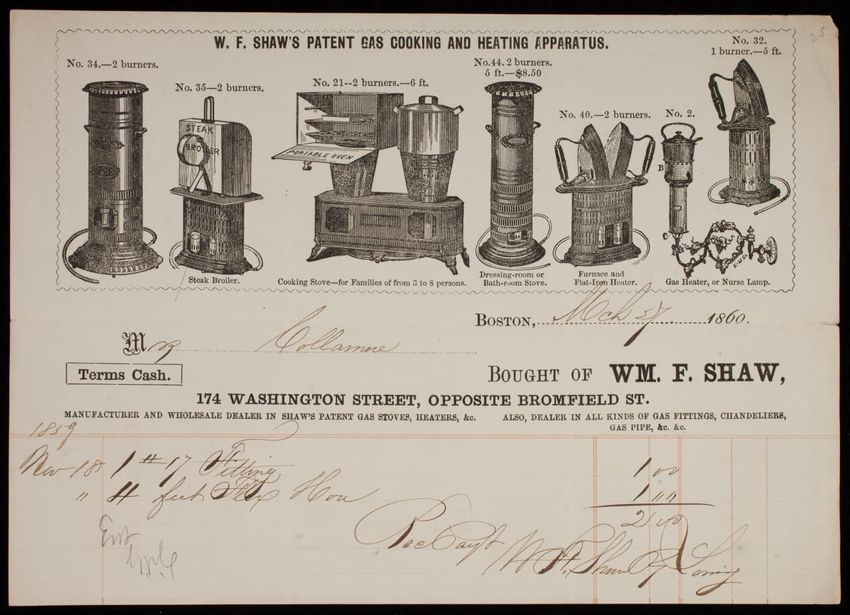 W. F. SHAW'S PATENT GAS COOKING AND HEATING APPARATUS.
No. 34.—2 burners.
No. 35—2 burners.
STEAK BROILER
Steak Broiler.
No. 21--2 burners.—6 ft.
PORTABLE OVEN
Cooking Stove—for Families of from 3 to 8 persons.
No.44. 2 burners.
5 ft.—$8.50
Dressing-room or
Bath-room Stove.
No. 40.—2 burners.
Furnace and
Flat-Iron Heater.
No. 2.
B
C
Gas Heater, or Nurse Lamp.
No. 32.
1 burner.—5 ft.
25
BOSTON, Mch 27 1860.
Mrs Collamore
Terms Cash.
BOUGHT OF WM. F. SHAW,
174 WASHINGTON STREET, OPPOSITE BROMFIELD ST.
MANUFACTURER AND WHOLESALE DEALER IN SHAW'S PATENT GAS STOVES, HEATERS, &c. ALSO, DEALER IN ALL KINDS OF GAS FITTINGS, CHANDELIERS,
GAS PIPE, &c. &c.
1859
Nov 18 1 # 17 Fitting 1 00
" 4 feet Flex Hose 1 00
2 00
Rec Payt
W F Shaw
Loring